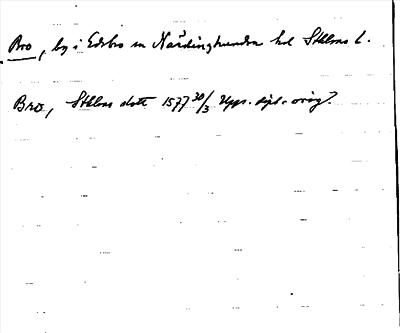 Bro, by i Edsbro sn Närdinghundra hd Sthlms l.
Bro, Sthlms slott 1577 30/3 Upps. dipl. orig?